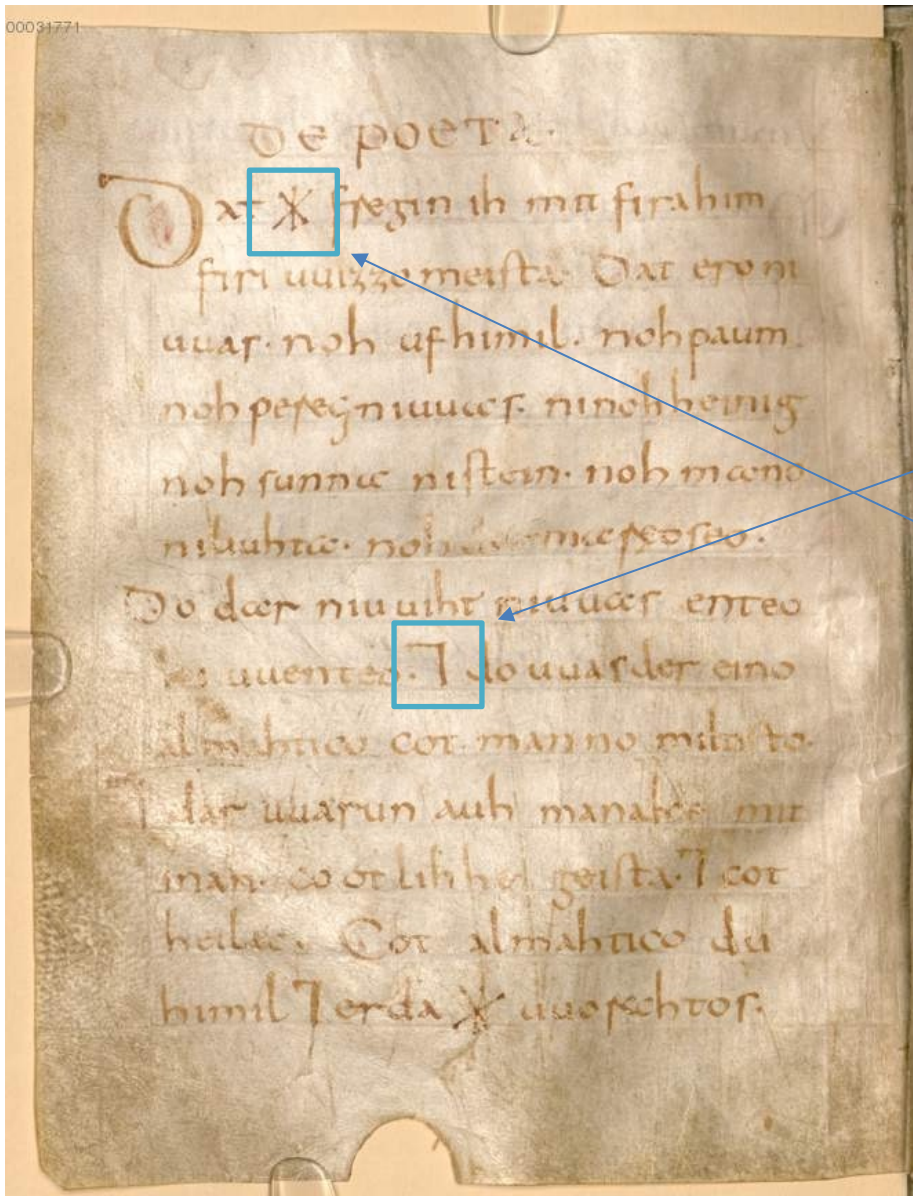 00031771
DE POETA.
Dat ᚼ fregin ih mit firahim
firi uuizzo meista. Dat ero ni
uuas. noh ufhimil. noh paum
noh pereg niuuas. ninohheinig
noh sunna nistein. noh mano
niliuhta. noh der mareoseo.
Do dar niuuiht niuuas enteo
ni uuenteo. ⁊ do uuas der eino
almahtico cot manno miltisto.
⁊ dar uuarun auh manake mit
inan. cootlihhe geista. ⁊ cot
heilac. Cot almahtico du
himil ⁊ erda ᚼ uuorahtos.